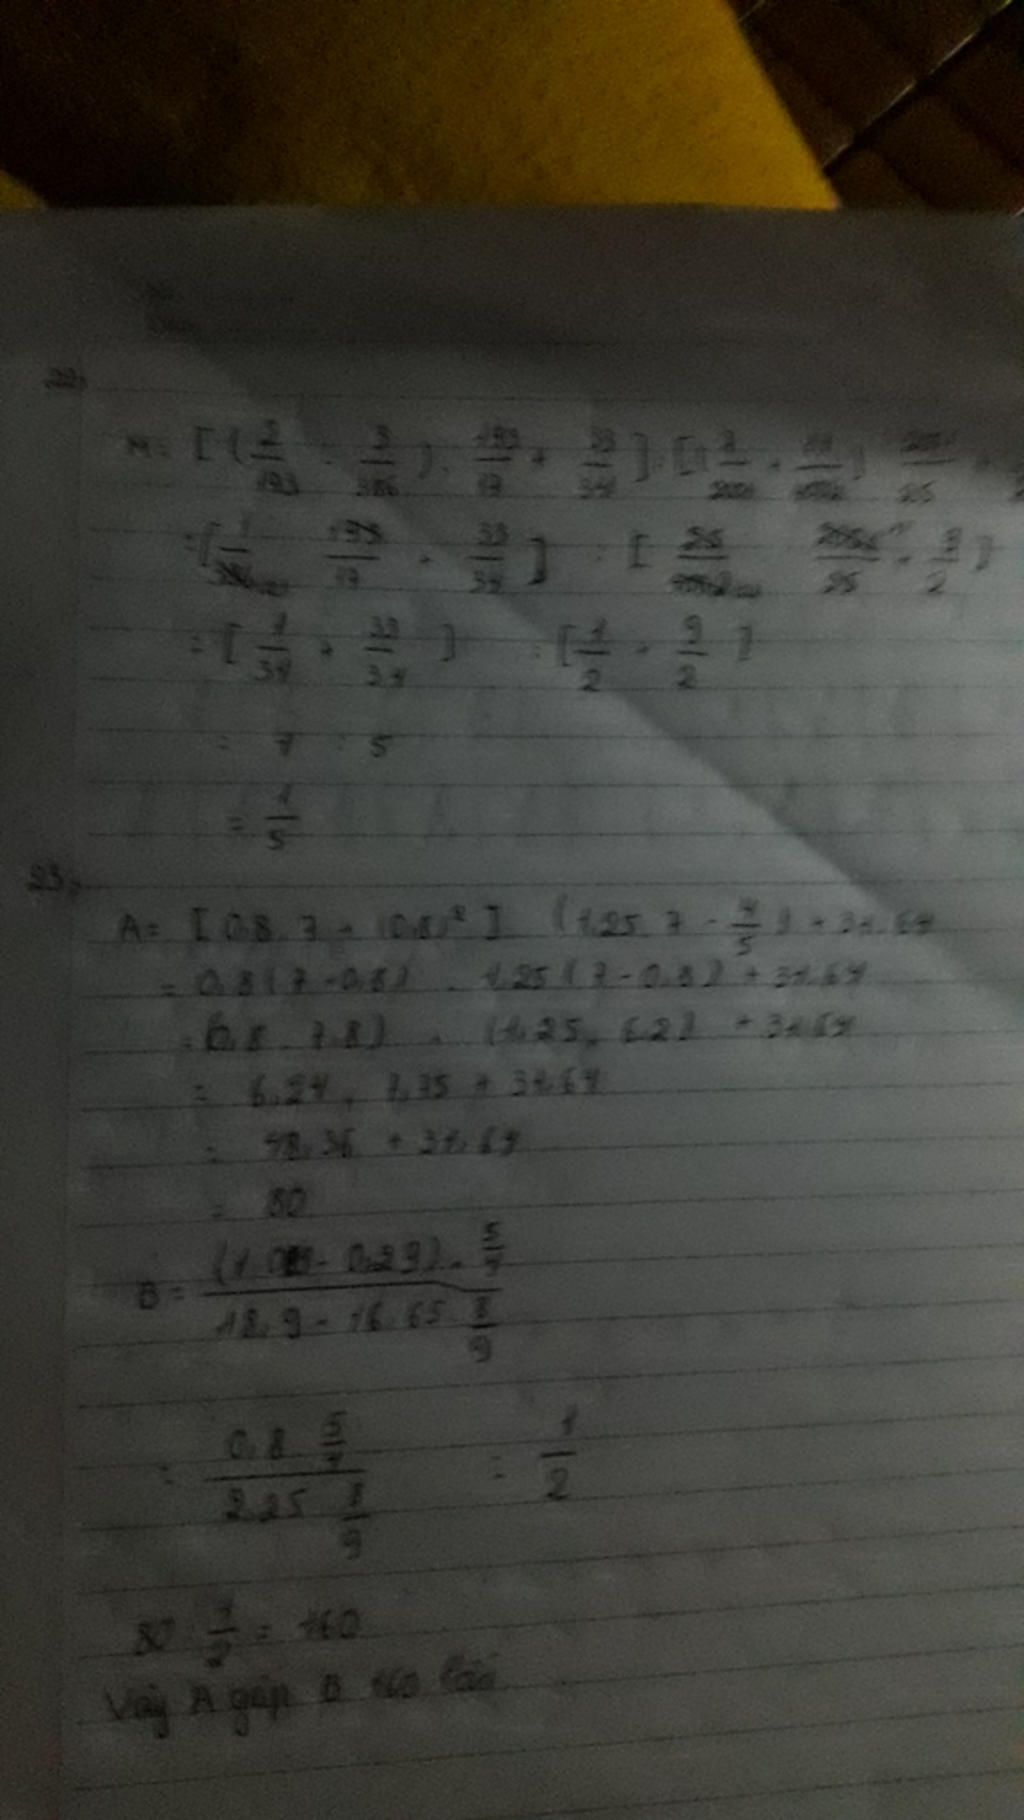 22,
M = [ ( 2/193 - 3/386 ) . 193/17 + 33/34 ] : [ ( 7/2001 + 11/4002 ) . 2001/25 +
= [ 1/386 . 193/17 + 33/34 ] : [ 25/4002 . 2001/25 + 9/2 ]
= [ 1/34 + 33/34 ] : [ 1/2 + 9/2 ]
= 1 : 5
= 1/5
23,
A = [ 0,8 . 7 + (0,8)² ] . ( 1,25 . 7 - 4/5 ) + 31,64
= 0,8 ( 7 + 0,8 ) . 1,25 ( 7 - 0,8 ) + 31,64
= (0,8 . 7,8) . (1,25 . 6,2) + 31,64
= 6,24 . 7,75 + 31,64
= 48,36 + 31,64
= 80
B = (1,09 - 0,29) . 5/4 / 18,9 - 16,65 . 8/9
= 0,8 . 5/4 / 2,25 . 8/9 = 1/2
80 : 1/2 = 160
Vậy A gấp B 160 lần